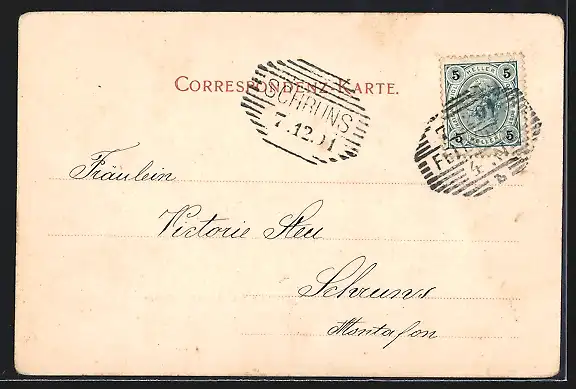 CORRESPONDENZ-KARTE.
SCHRUNS
7.12.01
5 HELLER 5
5 HELLER 5
Fräulein
Victorie Heu
Schruns
Montafon